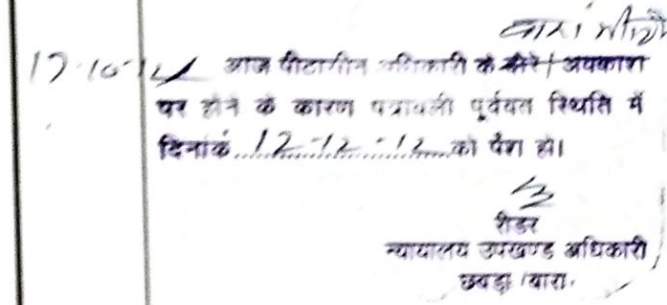 17-10-12 आज पीठासीन अधिकारी के दौरे / अवकाश
पर होने के कारण पत्रावली पूर्ववत स्थिति में
दिनांक 12-12-12 को पेश हो।
रीडर
न्यायालय उपखण्ड अधिकारी
छबड़ा बारा.